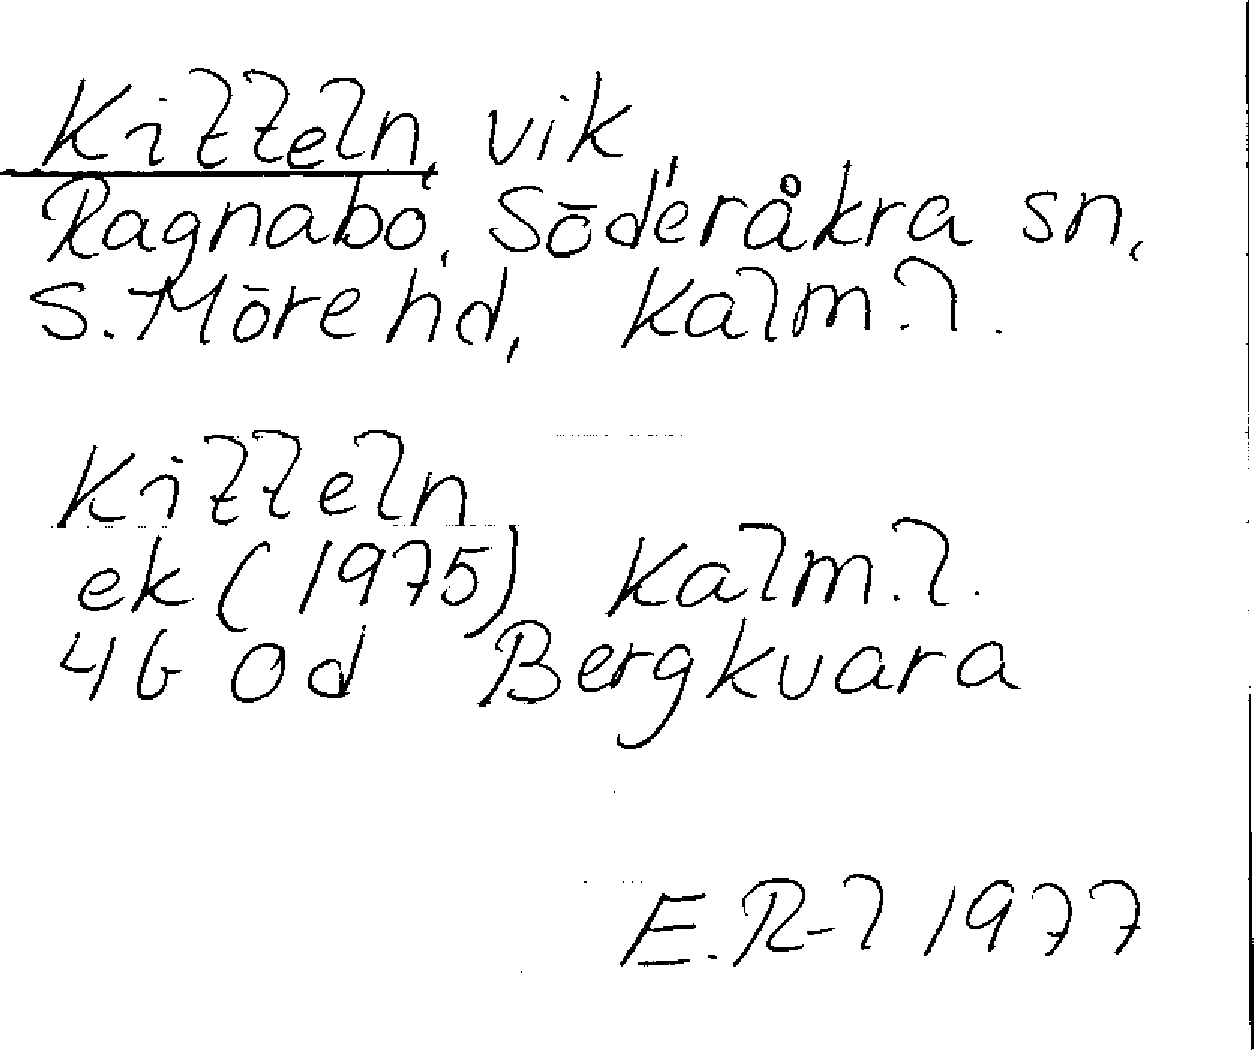 Kitteln, vik,
Ragnabo, Söderåkra sn,
S. Möre hd, Kalm. l.
Kitteln
ek (1975) Kalm. l.
4G 0d Bergkvara
E. R-l 1977